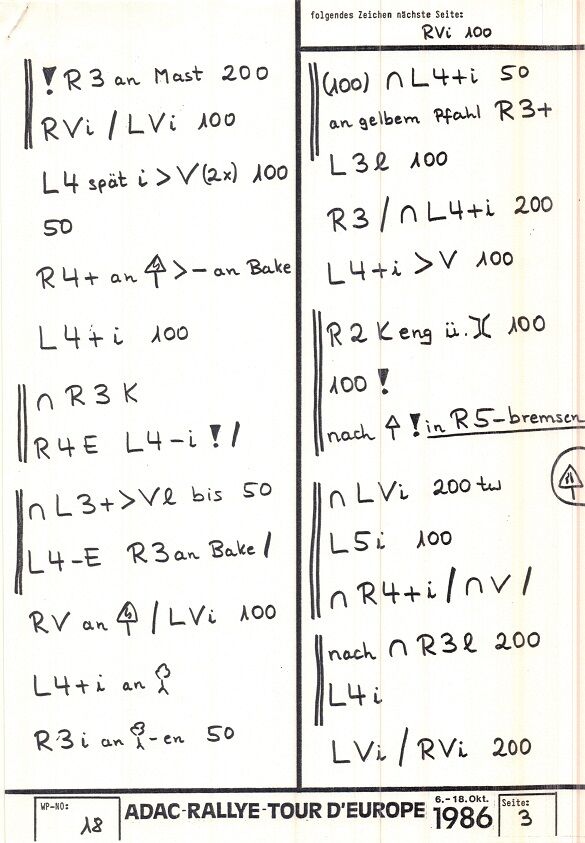 ! R3 an Mast 200
RVi / LVi 100
L4 spät i > V (2x) 100
50
R4+ an >- an Bake
L4+i 100
∩ R3 K
R4E L4-i ! /
∩ L3+ > Vl bis 50
L4-E R3 an Bake /
RV an / LVi 100
L4+i an
R3i an -en 50
folgendes Zeichen nächste Seite:
RVi 100
(100) ∩ L4+i 50
an gelbem Pfahl R3+
L3l 100
R3 / ∩ L4+i 200
L4+i > V 100
R2 K eng ü. )( 100
100 !
nach ! in R5-bremsen
∩ LVi 200 tw
L5i 100
∩ R4+i / ∩ V /
nach ∩ R3l 200
L4i
LVi / RVi 200
WP-NO: 18
ADAC-RALLYE-TOUR D'EUROPE
6.-18.Okt.
1986
Seite: 3